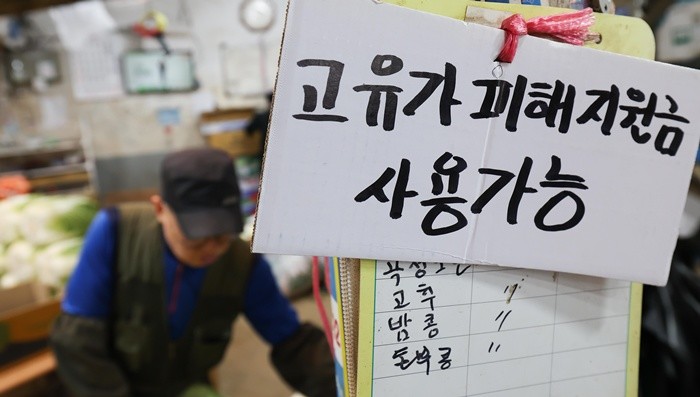 고유가 피해지원금
사용가능
고추 〃
밤콩 〃
〃